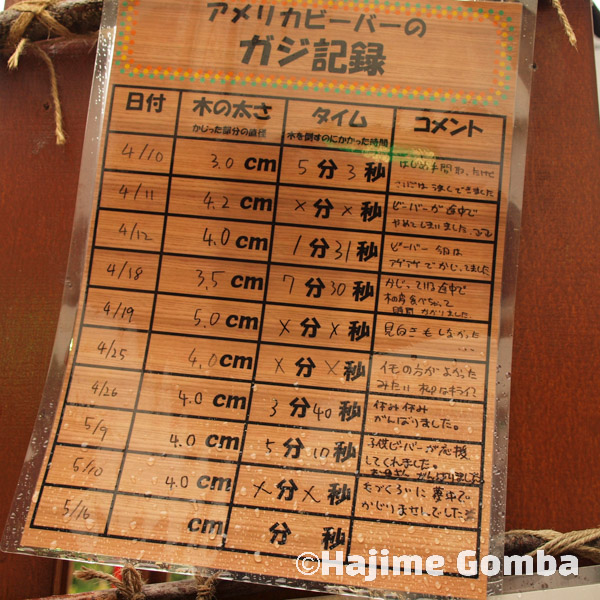 アメリカビーバーの
ガジ記録
日付 木の太さ タイム コメント
かじった部分の直径 木を倒すのにかかった時間
4/10 3.0 cm 5分3秒 はじめ手間取ったけど
さいごはうまくできました
4/11 4.2 cm ×分×秒 ビーバーが途中で
やめてしまいました。
4/12 4.0 cm 1分31秒 ビーバー 今日は
アゲアゲでかじってました
4/18 3.5 cm 7分30秒 かじっている途中で
木の皮食べちゃって
時間かかりました
4/19 5.0 cm ×分×秒 見向きもしなかった…
4/25 4.0 cm ×分×秒 イモの方がよかった
みたい
4/26 4.0 cm 3分40秒 休み休み
がんばりました。
5/9 4.0 cm 5分10秒 子供ビーバーが応援
してくれました。
お母さん がんばりました
5/10 4.0 cm ×分×秒 毛づくろいに夢中で
かじりませんでした
5/16 cm 分 秒
©Hajime Gomba